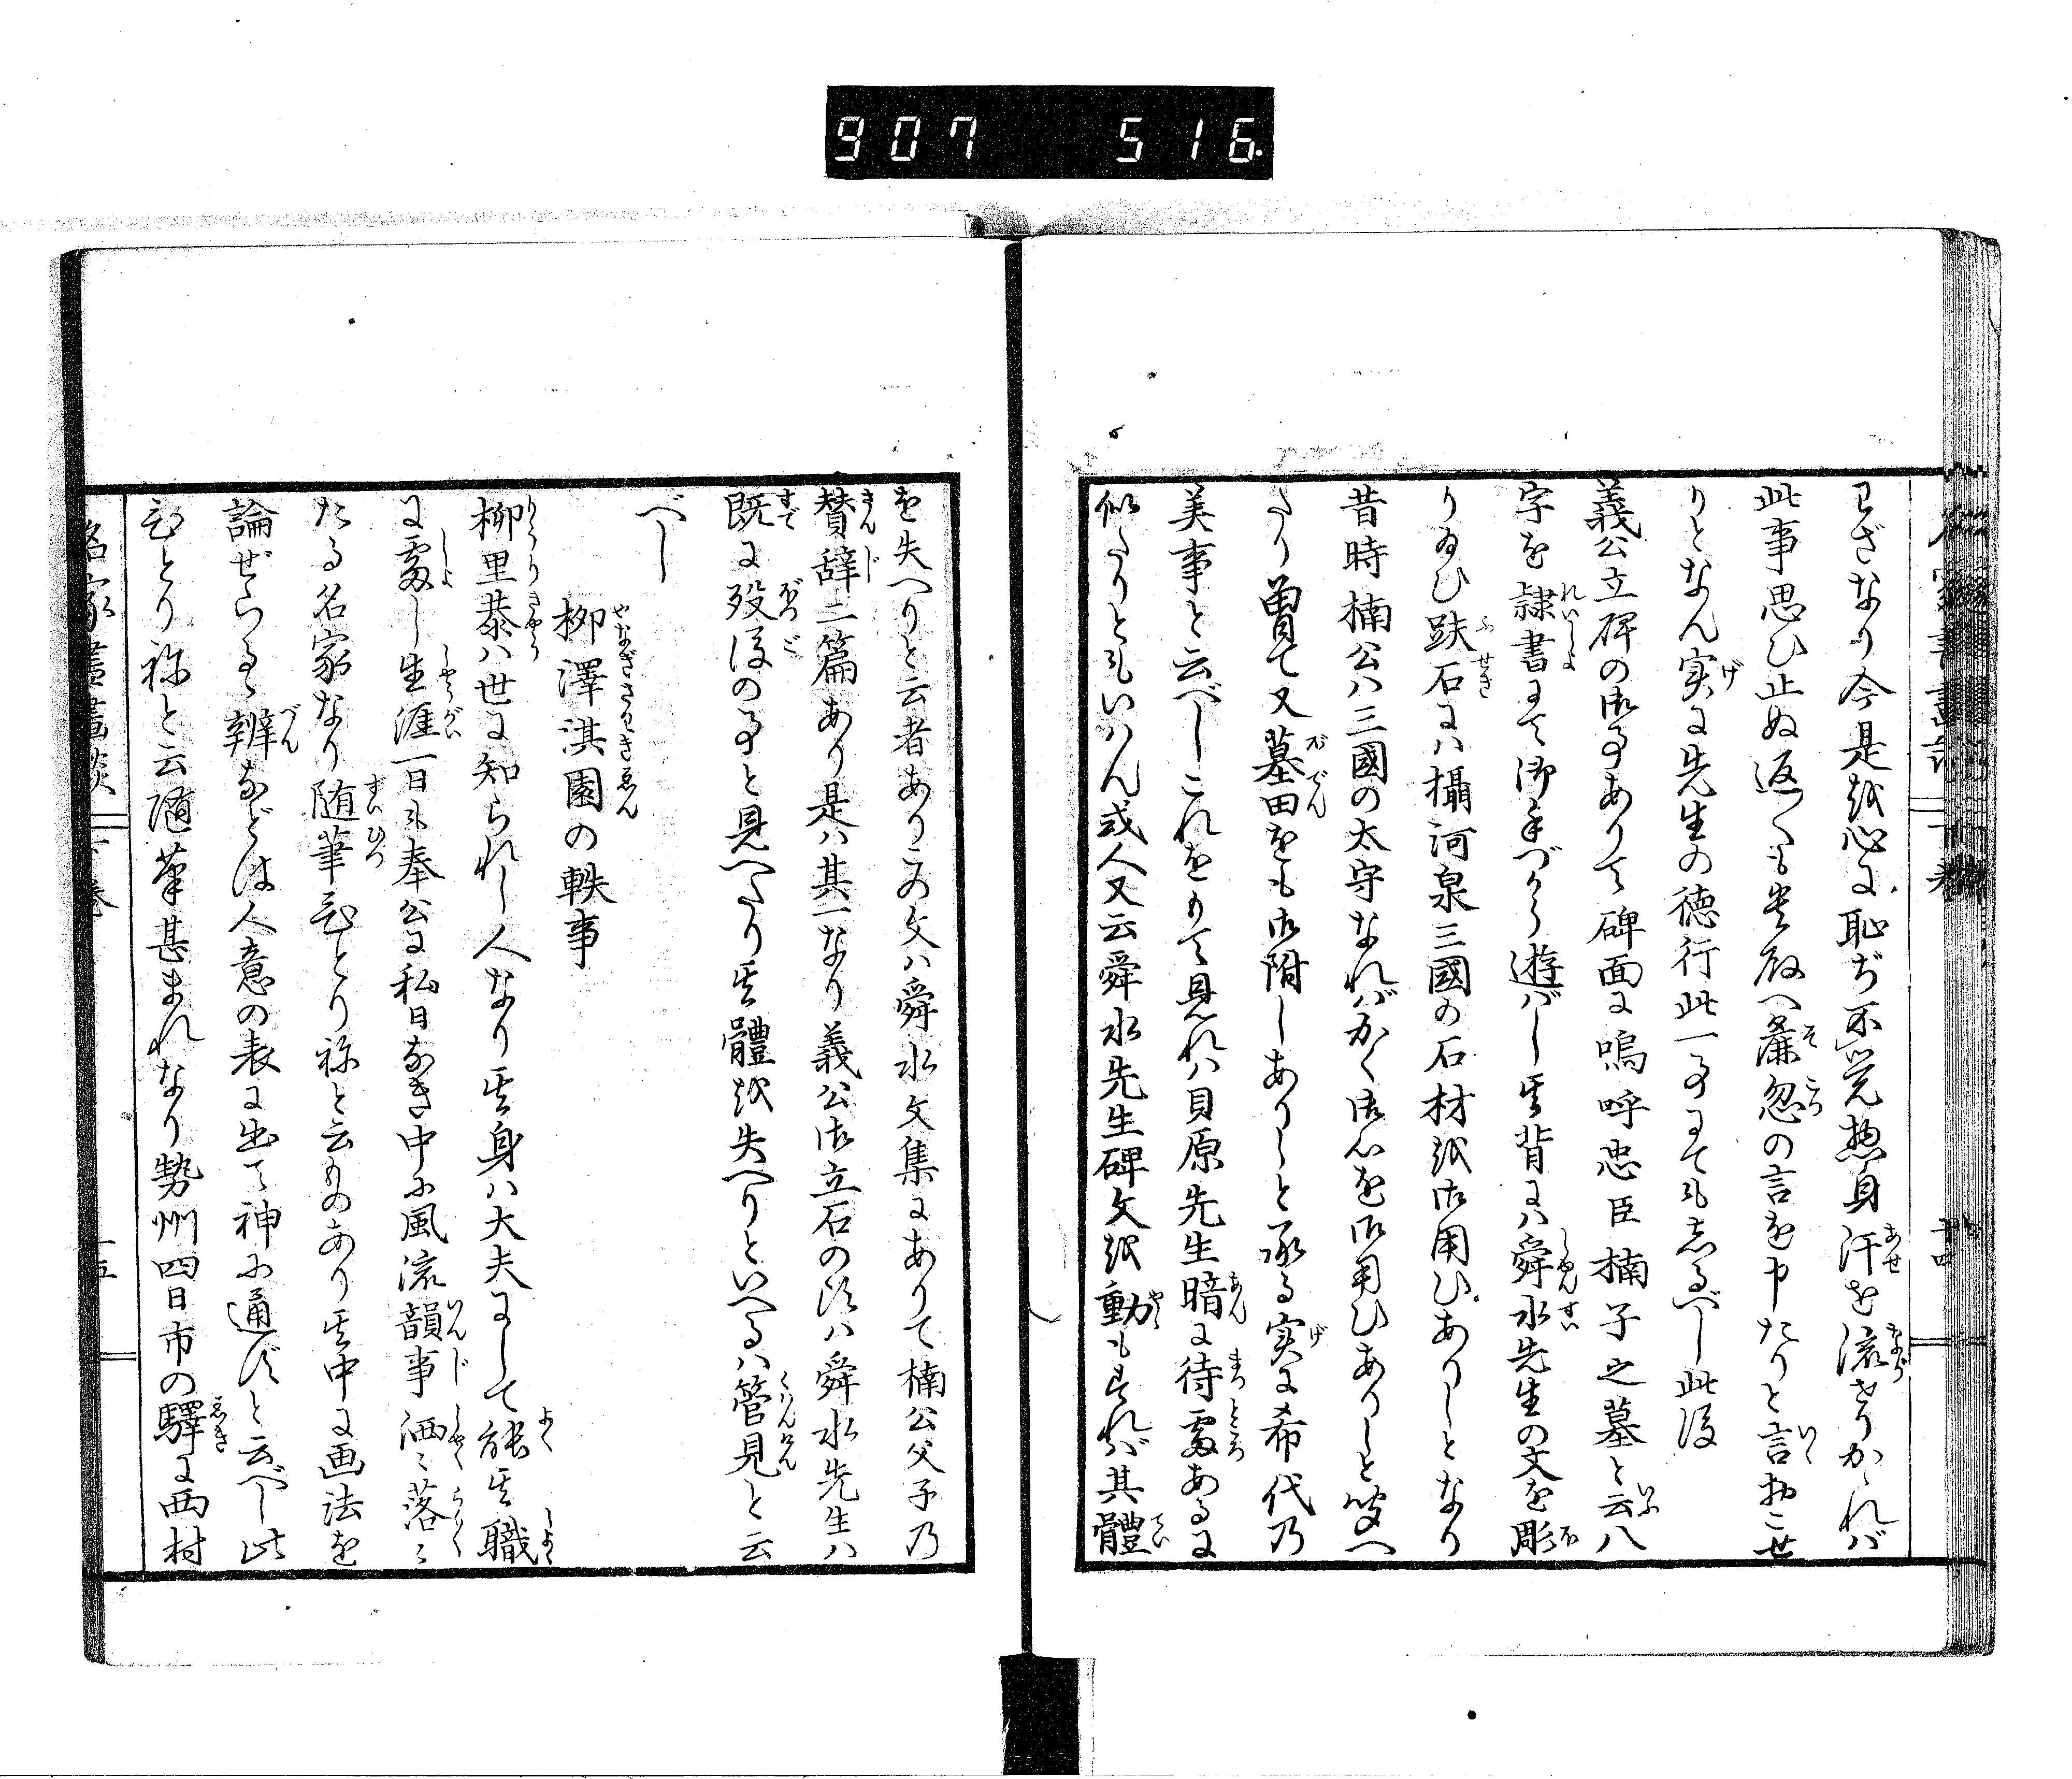 907 516
わざなり今是を心に恥ぢ不覚惣身汗を流せりかゝれバ
此事思ひ止ぬ返〳〵も貴殿へ麁忽の言を申たりと言おこせ
りとなん実に先生の徳行此一事にても志るべし此後
義公立碑の御事ありて碑面に嗚呼忠臣楠子之墓と云八
字を隷書にて御手づから遊バし其背にハ舜水先生の文を彫
りゐひ趺石にハ攝河泉三國の石材を御用ひありしとなり
昔時楠公ハ三國の太守なれバかく御心を御用ひありしと聞へ
たり曽て又墓田をも御附しありしと承る実に希代乃
美事と云べしこれをもて見れハ貝原先生暗に待處あるに
似たりともいハん或人又云舜水先生碑文を動もすれバ其體
を失へりと云者ありこの文ハ舜水文集にありて楠公父子乃
賛辞二篇あり是ハ其一なり義公御立石の頃ハ舜水先生ハ
既に歿後の事と見へたり其體を失へりといへるハ管見と云
べし
柳澤淇園の軼事
柳里恭ハ世に知られし人なり其身ハ大夫にして能其職
に處し生涯一日も奉公に私日なき中に風流韻事洒〻落〻
たる名家なり随筆ひとり祢と云ものあり其中に画法を
論ぜらるゝ辨などは人意の表に出て神に通ずと云べし此
ひとり祢と云随筆甚まれなり勢州四日市の驛に西村
名家書畫談
下巻
十五
十四